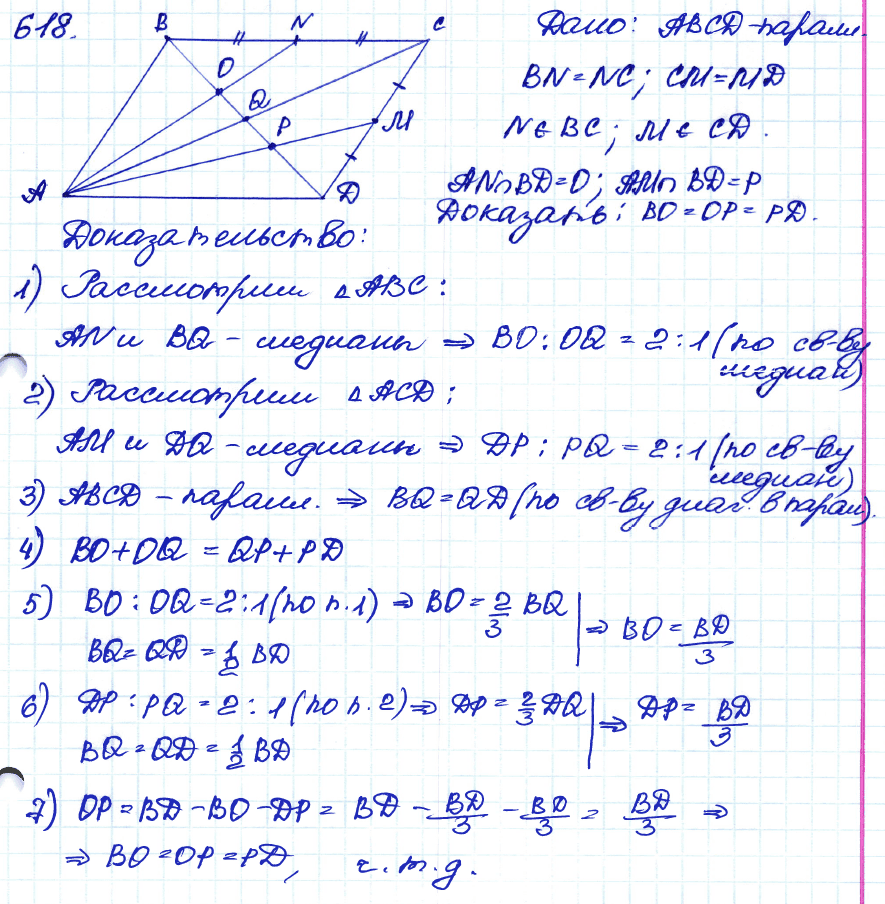 618.
B N C
O
Q
P M
A D
Дано: ABCD-парал.
BN=NC; CM=MD
N∈BC; M∈CD.
AN∩BD=O; AM∩BD=P
Доказать: BO=OP=PD.
Доказательство:
1) Рассмотрим △ABC:
AN и BQ - медианы ⇒ BO:OQ = 2:1 (по св-ву
медиан)
2) Рассмотрим △ACD:
AM и DQ - медианы ⇒ DP:PQ = 2:1 (по св-ву
медиан)
3) ABCD - парал. ⇒ BQ=QD (по св-ву диаг. в парал).
4) BO+OQ = QP+PD
5) BO:OQ=2:1 (по п.1) ⇒ BO=2/3 BQ | ⇒ BO = BD/3
BQ=QD=1/2 BD
6) DP:PQ=2:1 (по п.2) ⇒ DP=2/3 DQ | ⇒ DP = BD/3
BQ=QD=1/2 BD
7) OP=BD-BO-DP = BD - BD/3 - BD/3 = BD/3 ⇒
⇒ BO=OP=PD, ч.т.д.